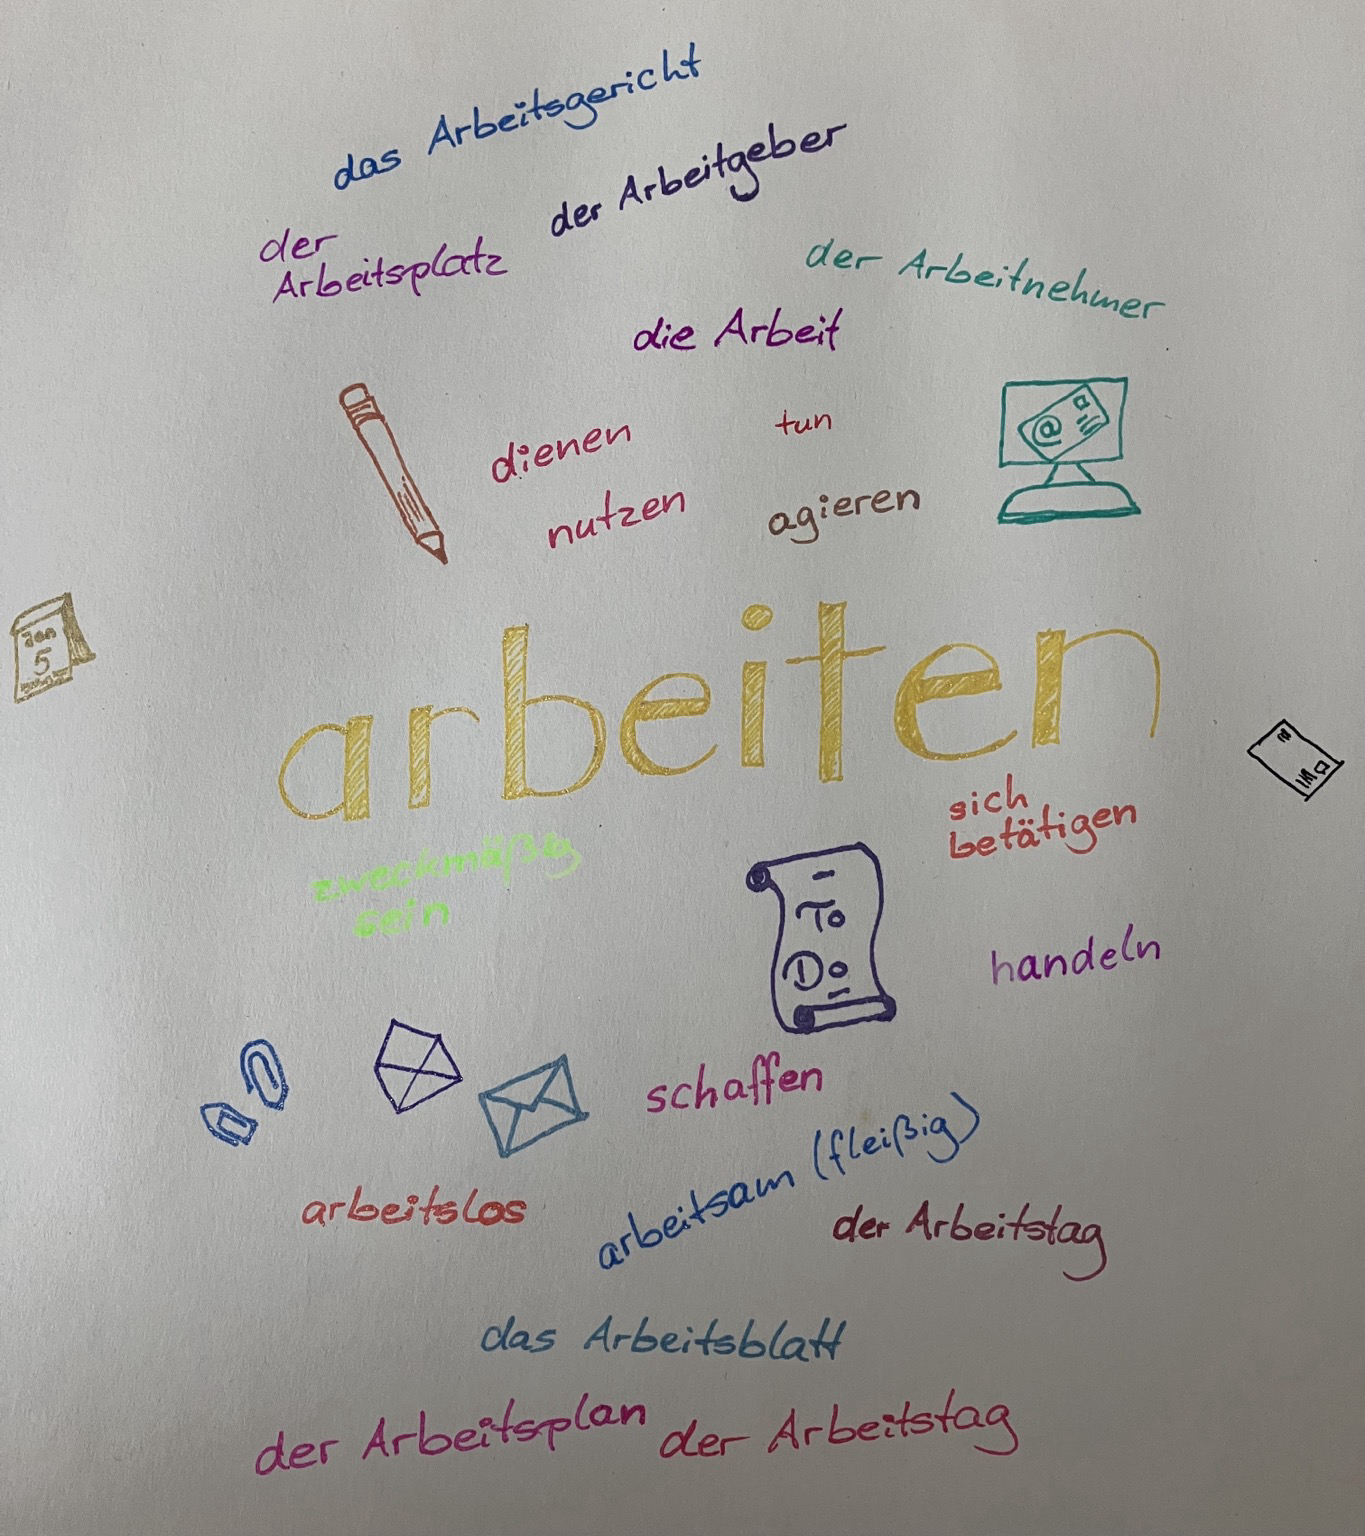 das Arbeitsgericht
der Arbeitgeber
der
Arbeitsplatz
der Arbeitnehmer
die Arbeit
dienen
tun
nutzen
agieren
@
Jan
5
arbeiten
sich
betätigen
zweckmäßig
sein
To
Do
handeln
schaffen
arbeitsam (fleißig)
arbeitslos
der Arbeitstag
das Arbeitsblatt
der Arbeitsplan
der Arbeitstag